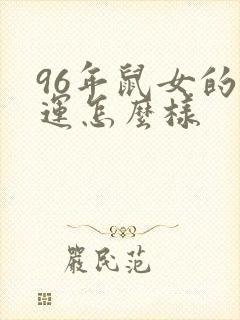 96年鼠女的
運怎麼樣
嚴民范